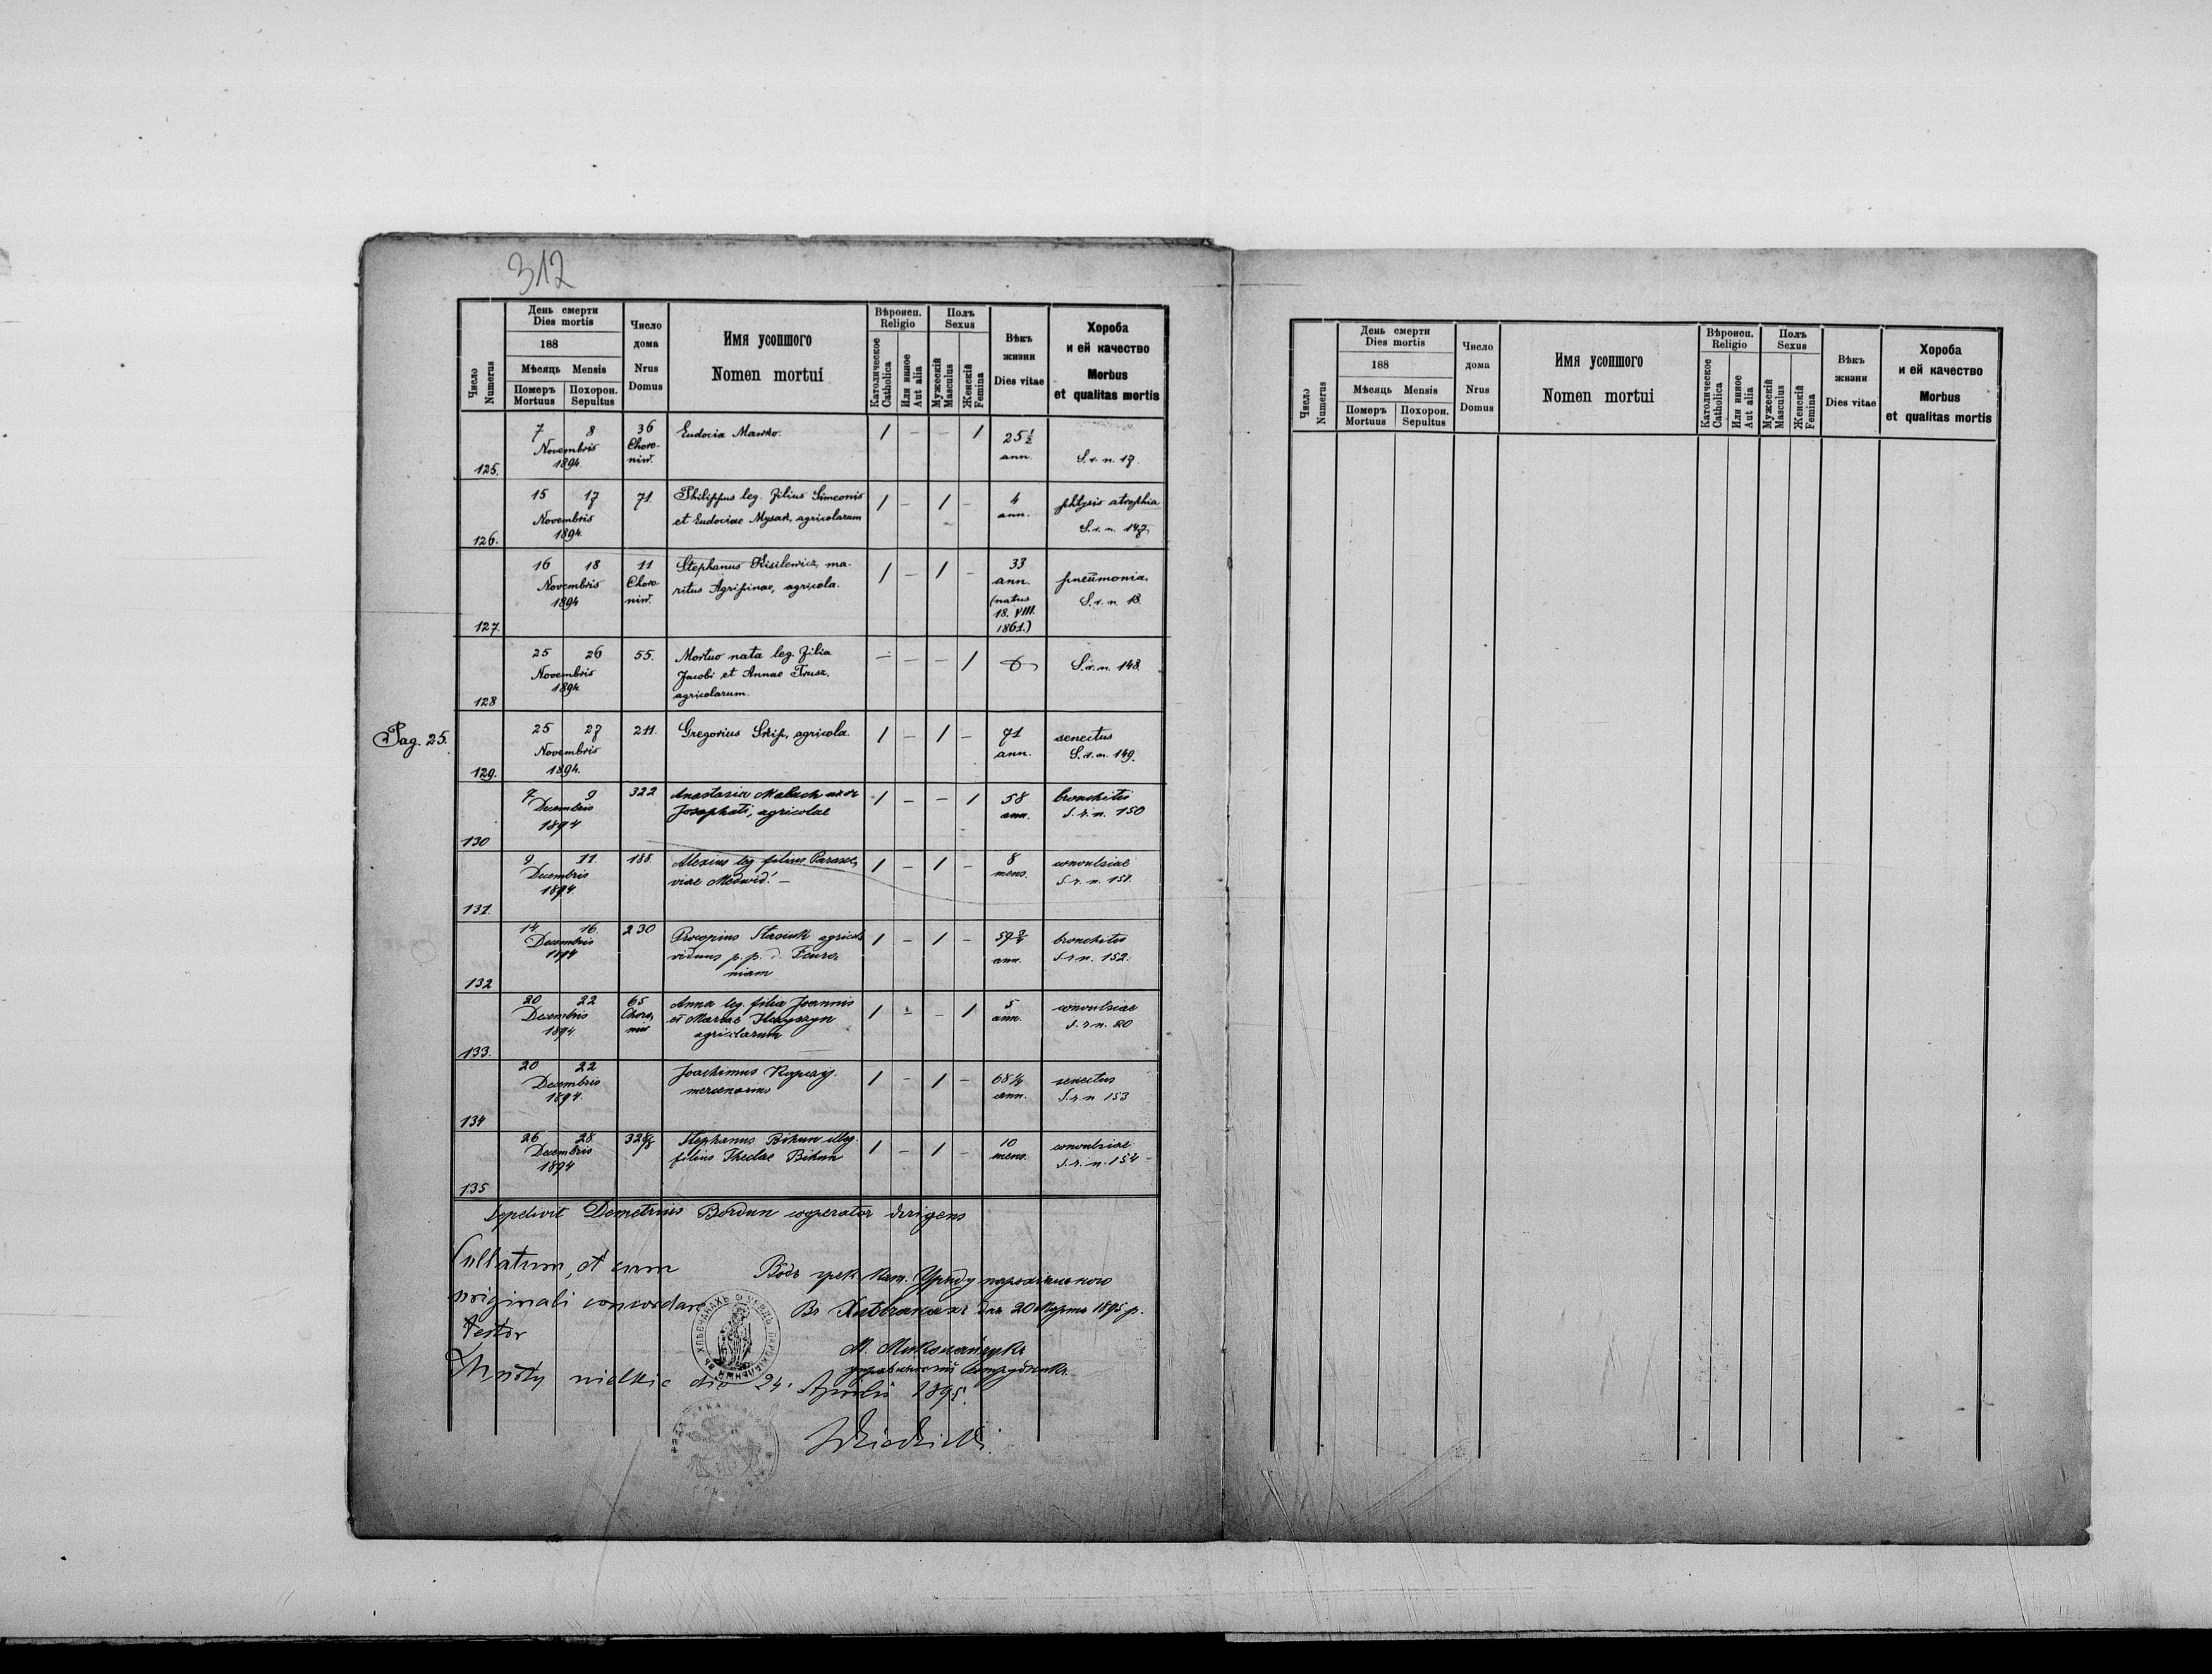 312
Число
Numerus
День смерти
Dies mortis
188
Мѣсяць Mensis
Померъ
Mortuus
Похорон.
Sepultus
Число
дома
Nrus
Domus
Имя усопшого
Nomen mortui
Вѣроисп.
Religio
Католическое
Catholica
Или инное
Aut alia
Полъ
Sexus
Мужескій
Masculus
Женскій
Femina
Вѣкъ
жизни
Dies vitae
Хороба
и ей качество
Morbus
et qualitas mortis
125.
7 8
Novembris
1894.
36
Choro-
niw.
Eudocia Mawko.
1 – – 1
25 ½
ann.
S. r. n. 17.
126.
15 17
Novembris
1894.
71.
Philippus leg. filius Simeonis
et Eudociae Mysak, agricolarum
1 – 1 –
4
ann.
phtysis atrophia
S. r. n. 147.
127.
16 18
Novembris
1894
11
Choro-
niw.
Stephanus Kisilewicz, ma-
ritus Agripinae, agricola.
1 – 1 –
33
ann.
(natus
18. VIII.
1861.)
pneumonia.
S. r. n. 18.
128
25 26
Novembris
1894.
55.
Mortuo nata leg. filia
Jacobi et Annae Trusz,
agricolarum.
– – – 1
S. r. n. 148.
Pag. 25.
129.
25 27
Novembris
1894.
211.
Gregorius Skip, agricola.
1 – 1 –
71
ann.
senectus
S. r. n. 149.
130
7 9
Decembris
1894
322
Anastasia Maluch uxor
Josaphati, agricolae
1 – – 1
58
ann.
bronchitis
S. r. n. 150
131
9 11.
Decembris
1894.
188
Alexius leg. filius Parasce-
viae Medwid. –
1 – 1 –
8
mens.
convulsiae
S. r. n. 151.
132
14 16.
Decembris
1894
230
Procopius Stasiuk agricola
viduus p. p. d.
1 – 1 –
59
ann.
bronchitis
S. r. n. 152.
133.
20 22
Decembris
1894
65
Choro-
niw
Anna leg. filia Joannis
et Mariae
agricolarum
1 – – 1
5
ann.
convulsiae
S. r. n. 20
134
20 22
Decembris
1894.
Joachimus
mercenarius
1 – 1 –
68 ½
ann.
senectus
S. r. n. 153
135
26 28
Decembris
1894
328
Stephanus Bihun illeg.
filius Theclae Bihun
1 – 1 –
10
mens.
convulsiae
S. r. n. 154
Sepelivit Demetrius Bordun cooperator dirigens
Collatum, et cum
originali concordare
testor
Mosty wielkie die 24. Aprilis 1895.
Водъ грек. кат. Уряду парохіяльного
Въ Хлѣвчанахъ дня 20 Марта 1895 р.
Число
Numerus
День смерти
Dies mortis
188
Мѣсяць Mensis
Померъ
Mortuus
Похорон.
Sepultus
Число
дома
Nrus
Domus
Имя усопшого
Nomen mortui
Вѣроисп.
Religio
Католическое
Catholica
Или инное
Aut alia
Полъ
Sexus
Мужескій
Masculus
Женскій
Femina
Вѣкъ
жизни
Dies vitae
Хороба
и ей качество
Morbus
et qualitas mortis